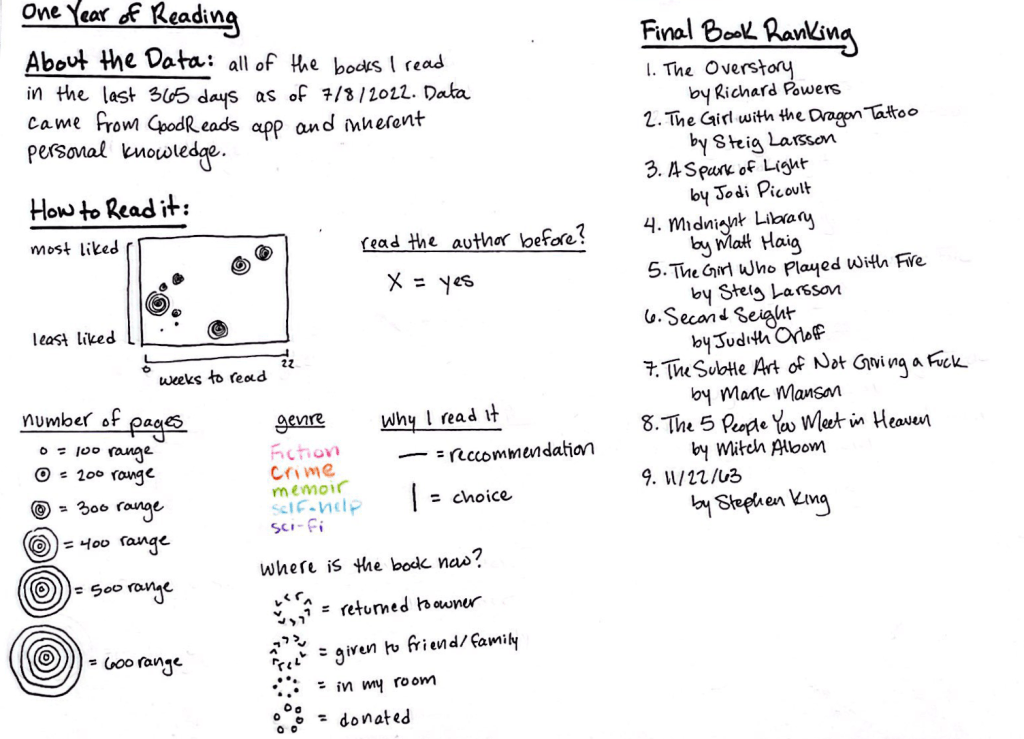 One Year of Reading
About the Data: all of the books I read
in the last 365 days as of 7/8/2022. Data
came from GoodReads app and inherent
personal knowledge.
How to Read it:
most liked
least liked
0
22
weeks to read
read the author before?
X = yes
number of pages
= 100 range
= 200 range
= 300 range
= 400 range
= 500 range
= 600 range
genre
Fiction
Crime
memoir
self-help
sci-fi
Why I read it
— = reccommendation
| = choice
Where is the book now?
= returned to owner
= given to friend/family
= in my room
= donated
Final Book Ranking
1. The Overstory
by Richard Powers
2. The Girl with the Dragon Tattoo
by Steig Larsson
3. A Spark of Light
by Jodi Picoult
4. Midnight Library
by Matt Haig
5. The Girl Who Played With Fire
by Steig Larsson
6. Second Seight
by Judith Orloff
7. The Subtle Art of Not Giving a Fuck
by Mark Manson
8. The 5 People You Meet in Heaven
by Mitch Albom
9. 11/22/63
by Stephen King